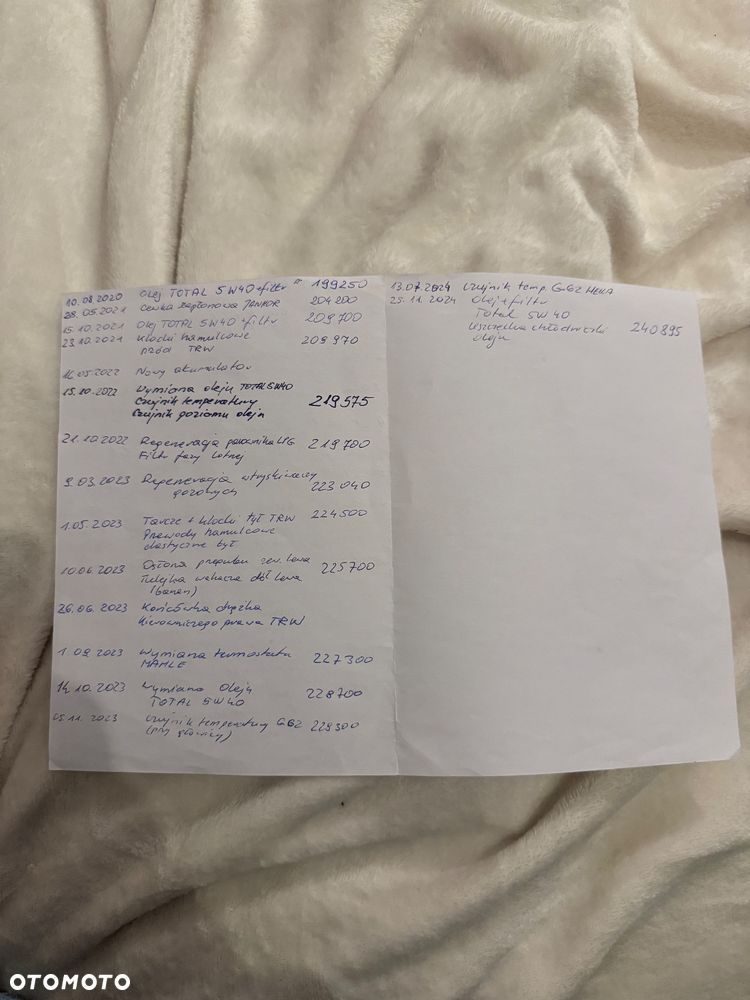 10.08.2020 Olej TOTAL 5W40+filtr 199250
28.05.2021 Cewka zapłonowa JANMOR 204200
15.10.2021 Olej TOTAL 5W40 +filtr 209700
23.10.2021 Klocki hamulcowe 209970
przód TRW
16.05.2022 Nowy akumulator
15.10.2022 Wymiana oleju TOTAL 5W40
Czujnik temperatury 219575
Czujnik poziomu oleju
21.10.2022 Regeneracja parownika LPG 219700
Filtr fazy lotnej
9.03.2023 Regeneracja wtryskiwaczy
gazowych 223040
1.05.2023 Tarcze + klocki tył TRW 224500
Przewody hamulcowe
elastyczne tył
10.06.2023 Osłona przegubu zew. lewa 225700
Tulejka wahacza dół lewa
(banan)
26.06.2023 Końcówka drążka
kierowniczego prawa TRW
1.09.2023 Wymiana termostatu 227300
MAHLE
14.10.2023 Wymiana oleju 228700
TOTAL 5W40
05.11.2023 czujnik temperatury G62 229300
(przy głowicy)
13.07.2024 czujnik temp. G62
25.11.2024 Olej + filtr
Total 5W40
uszczelka chłodniczki 240895
oleju
OTOMOTO